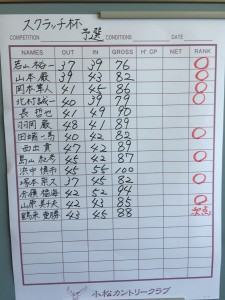 スクラッチ杯
予選
COMPETITION CONDITIONS DATE
NAMES OUT IN GROSS H'CP NET RANK
若山 裕一 37 39 76 ○
山本 厳 39 43 82 ○
岡本 隼人 41 45 86 ○
北村 誠一 40 39 79 ○
長 哲也 41 49 90
羽岡 厳 48 41 89
田端 一馬 40 42 82 ○
西出 貴 47 42 89
島山 45 42 87 ○
浜中 慎 45 55 100
塚本 37 45 82 ○
42 52 94
山原 42 43 85 ○
重勝 43 45 88 次点
小松カントリークラブ